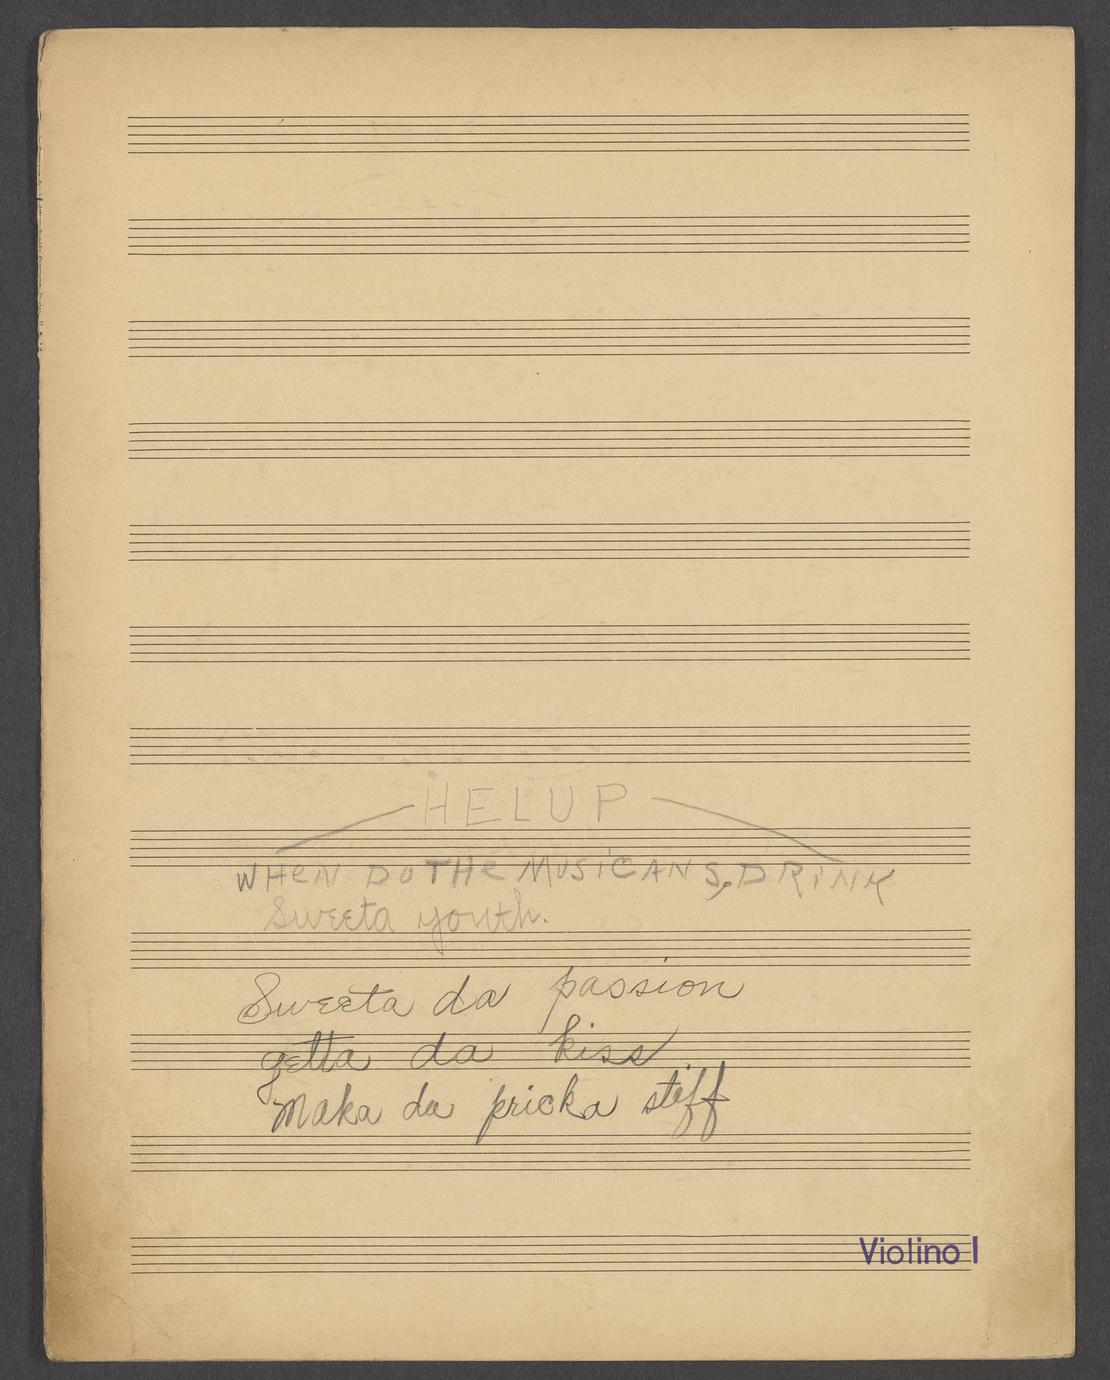 HELUP
WHeN DO THe MUSiCANS, DRiNK
Sweeta youth.
Sweeta da passion
getta da kiss
Maka da pricka stiff
Violino I